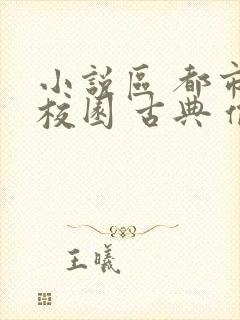 小說區 都市
校園 古典
王曦